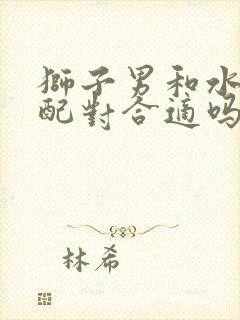 獅子男和水
配對合適嗎
林希